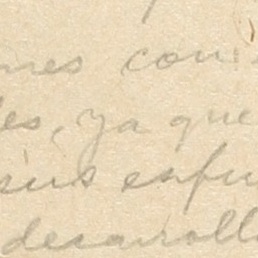 mes con
es, ya que
sus esfu
desarroll